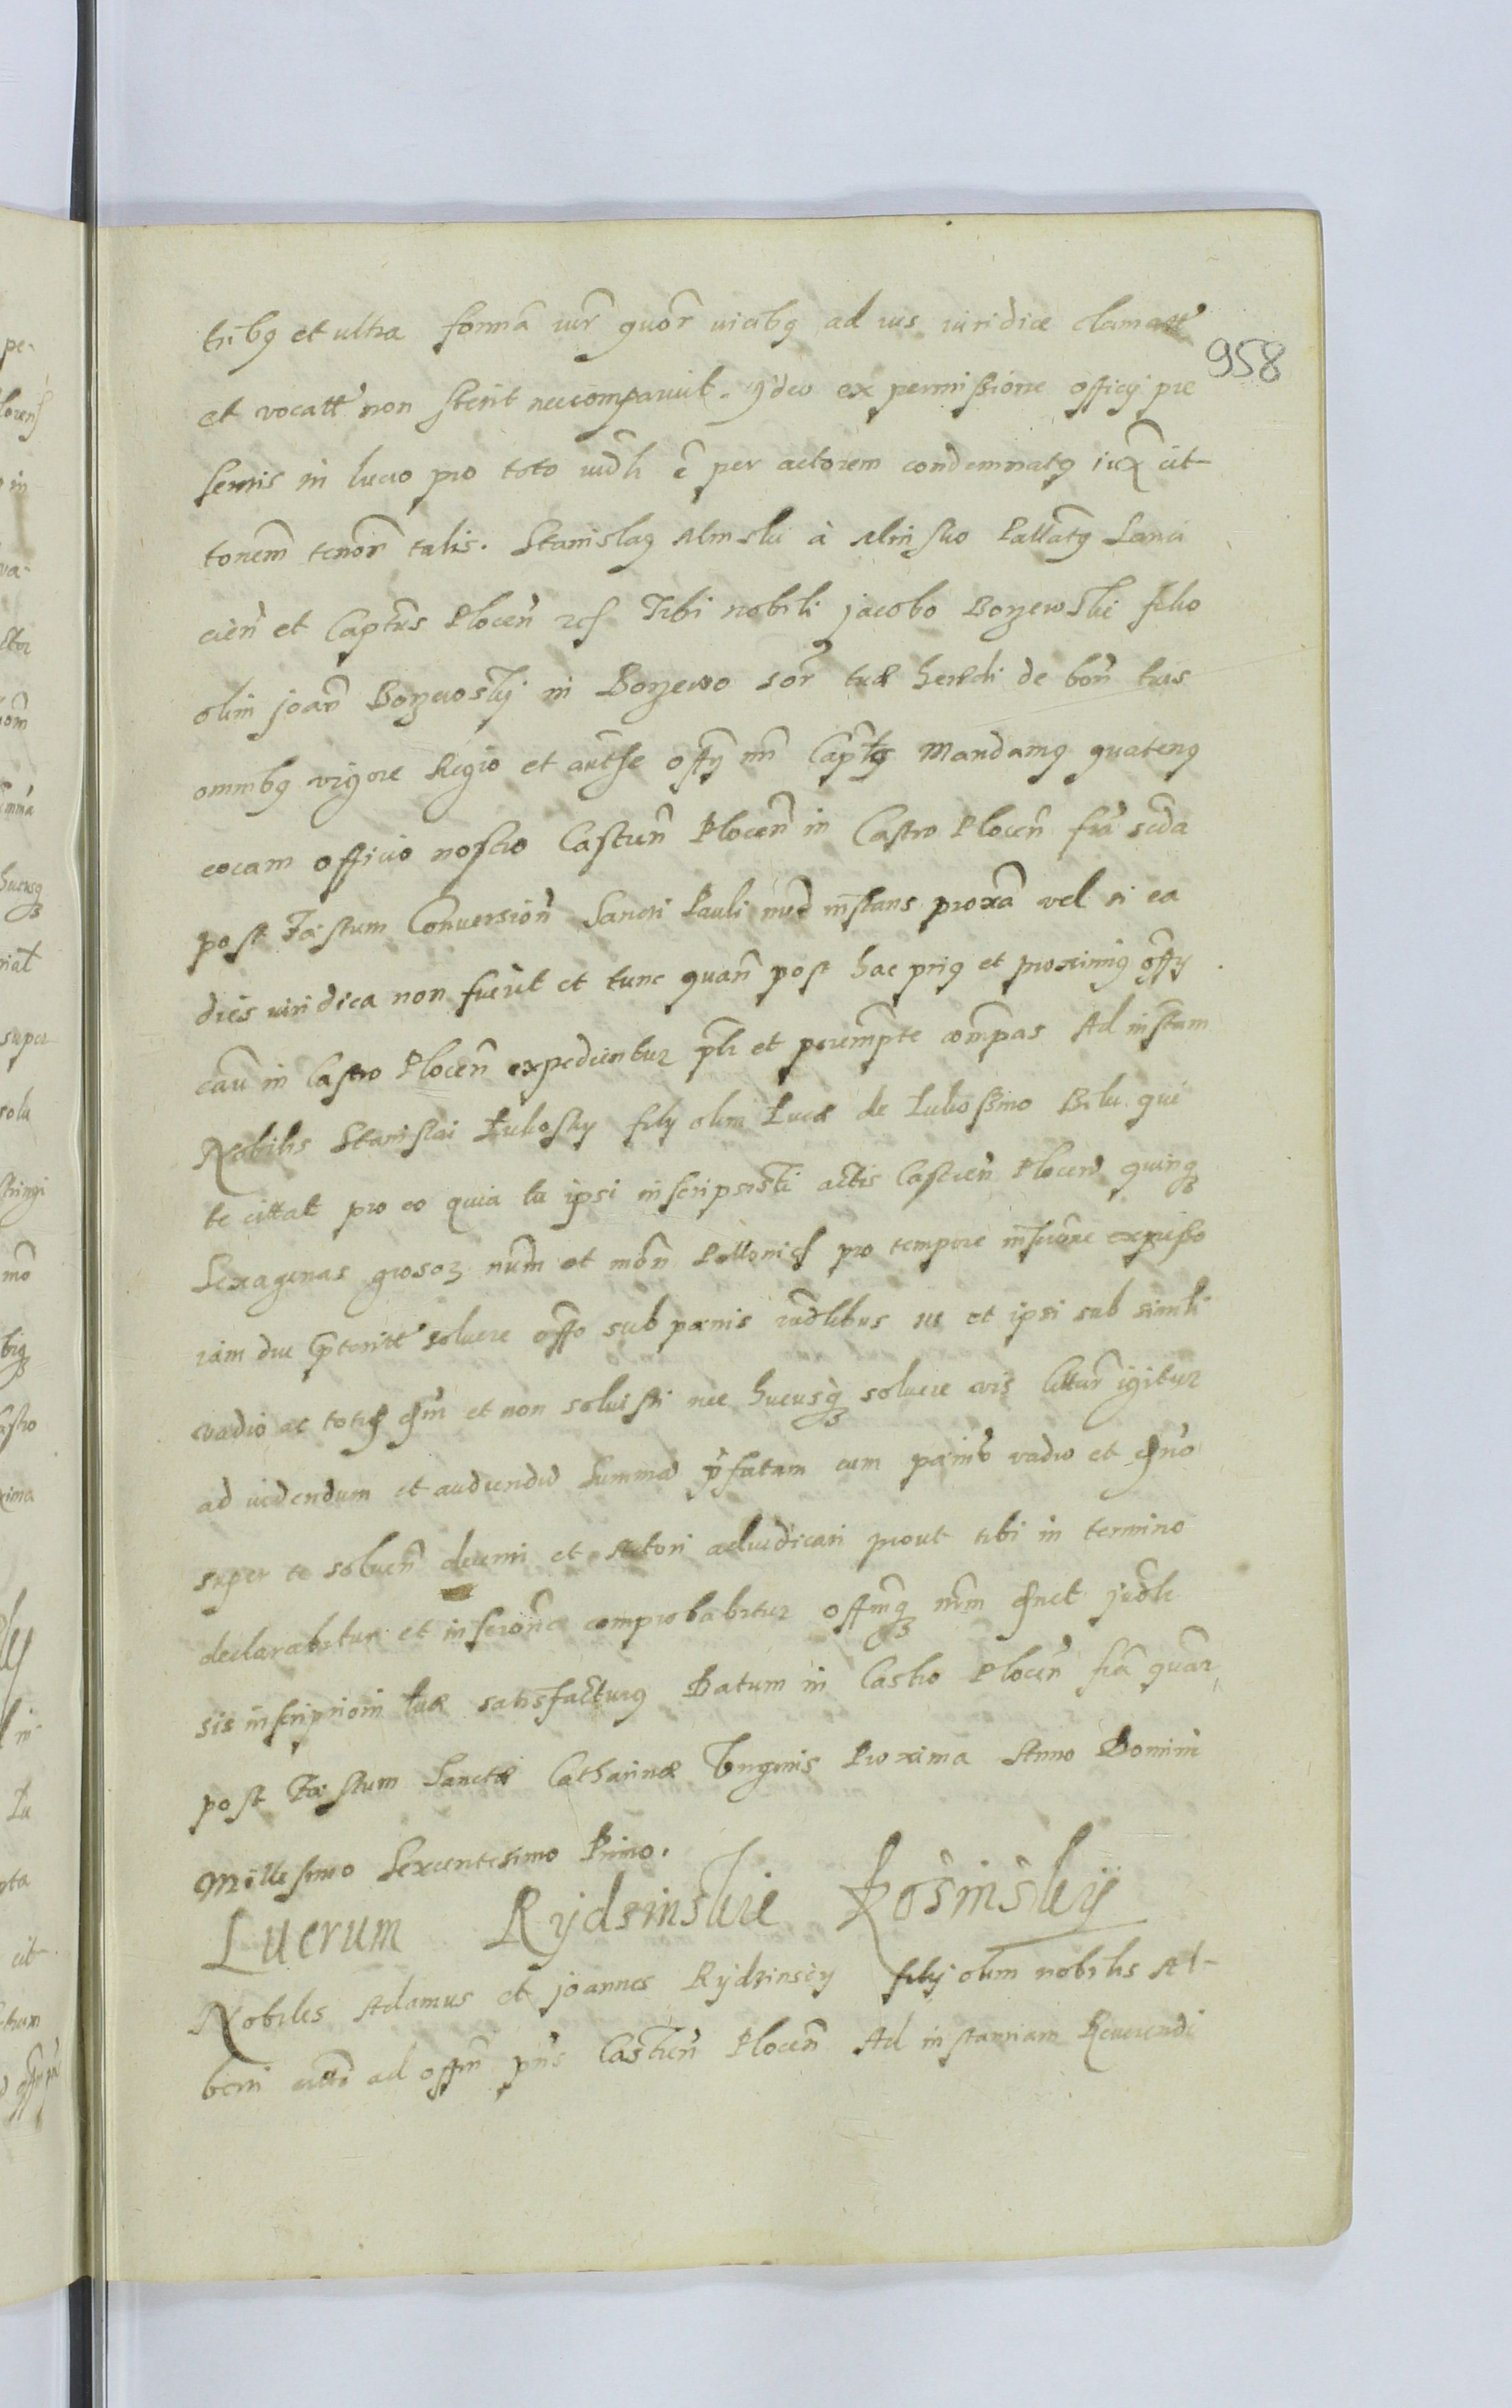 tribq et ultra formã iur̃ quor̃ uicibq ad ius iuridice clamatt
958
et vocatt non stetit nec comparuit. Ideo ex permissione officij pre
sentis in lucro pro toto iudli ẽ per actorem condemnatq iux cit
tonem tenor̃ talis. Stanislaq Minski à Minsko Pallatq Lanci
cien̄ et Captũs Plocen̄ Tibi nobili Jacobo Borzewski filio
olim Joañ Borzewoskij in Borzewo sor̃ tuæ herædi de boñ tuis
omnibq vigore Regio et auťhe offỹ nri Capťlq Mandamq quatenq
coram officio nostro Castren̄ Plocen̄ in Castro Plocen̄ fria scda
post Fæstum Conversion̄ Sancti Pauli nunc instans proxã vel si ea
dies iuridica non fuerit et tunc quañ post hac priq et proximiq offỹ
cau in Castro Plocen̄ expedientur plr et perempte compas Ad instam
Nobilis Stanislai Lukosky filij olim Lucæ de Lukossino qui
te cittat pro eo quia tu ipsi inscripsisti actis Castren̄ Plocen̄ quinq
Sexagenas grosoz num et mon̄ Pollonic pro tempore inscrõne expresso
iam diu pterite soluere offo sub pænis iudlibus ac et ipsi sub simili
vadio ac toties et non soluisti nec hucusq soluere vis Cittar igitur
ad videndum et audiendu Summã pfatam cum pæniš vadio et
super te soluen̄ decerni et Actori adiudicari prout tibi in termino
declarabitur et inscrõne comprobabitur offmq nrm
sis inscription̄ tuæ satisfacturq Datum in Castro Plocen̄ fria quar
post Fæstum Sanctæ Catharinæ Virginis Proxima Anno Domini
Millesimo Sexcentesimo Primo.
Lucrum Rydzinskie Kosinsky
Nobiles Adamus et Joannes Rydzinscy filij olim nobilis Al-
berti citti ad offm pñs Castren̄ Plocen̄ Ad instantiam Reverendi